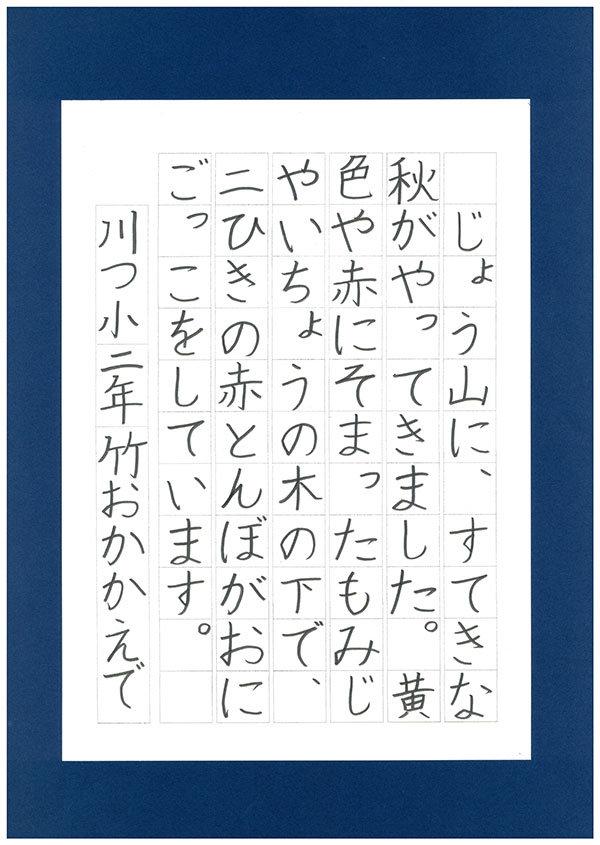 じょう山に、すてきな
秋がやってきました。黄
色や赤にそまったもみじ
やいちょうの木の下で、
二ひきの赤とんぼがおに
ごっこをしています。
川つ小二年竹おかかえで